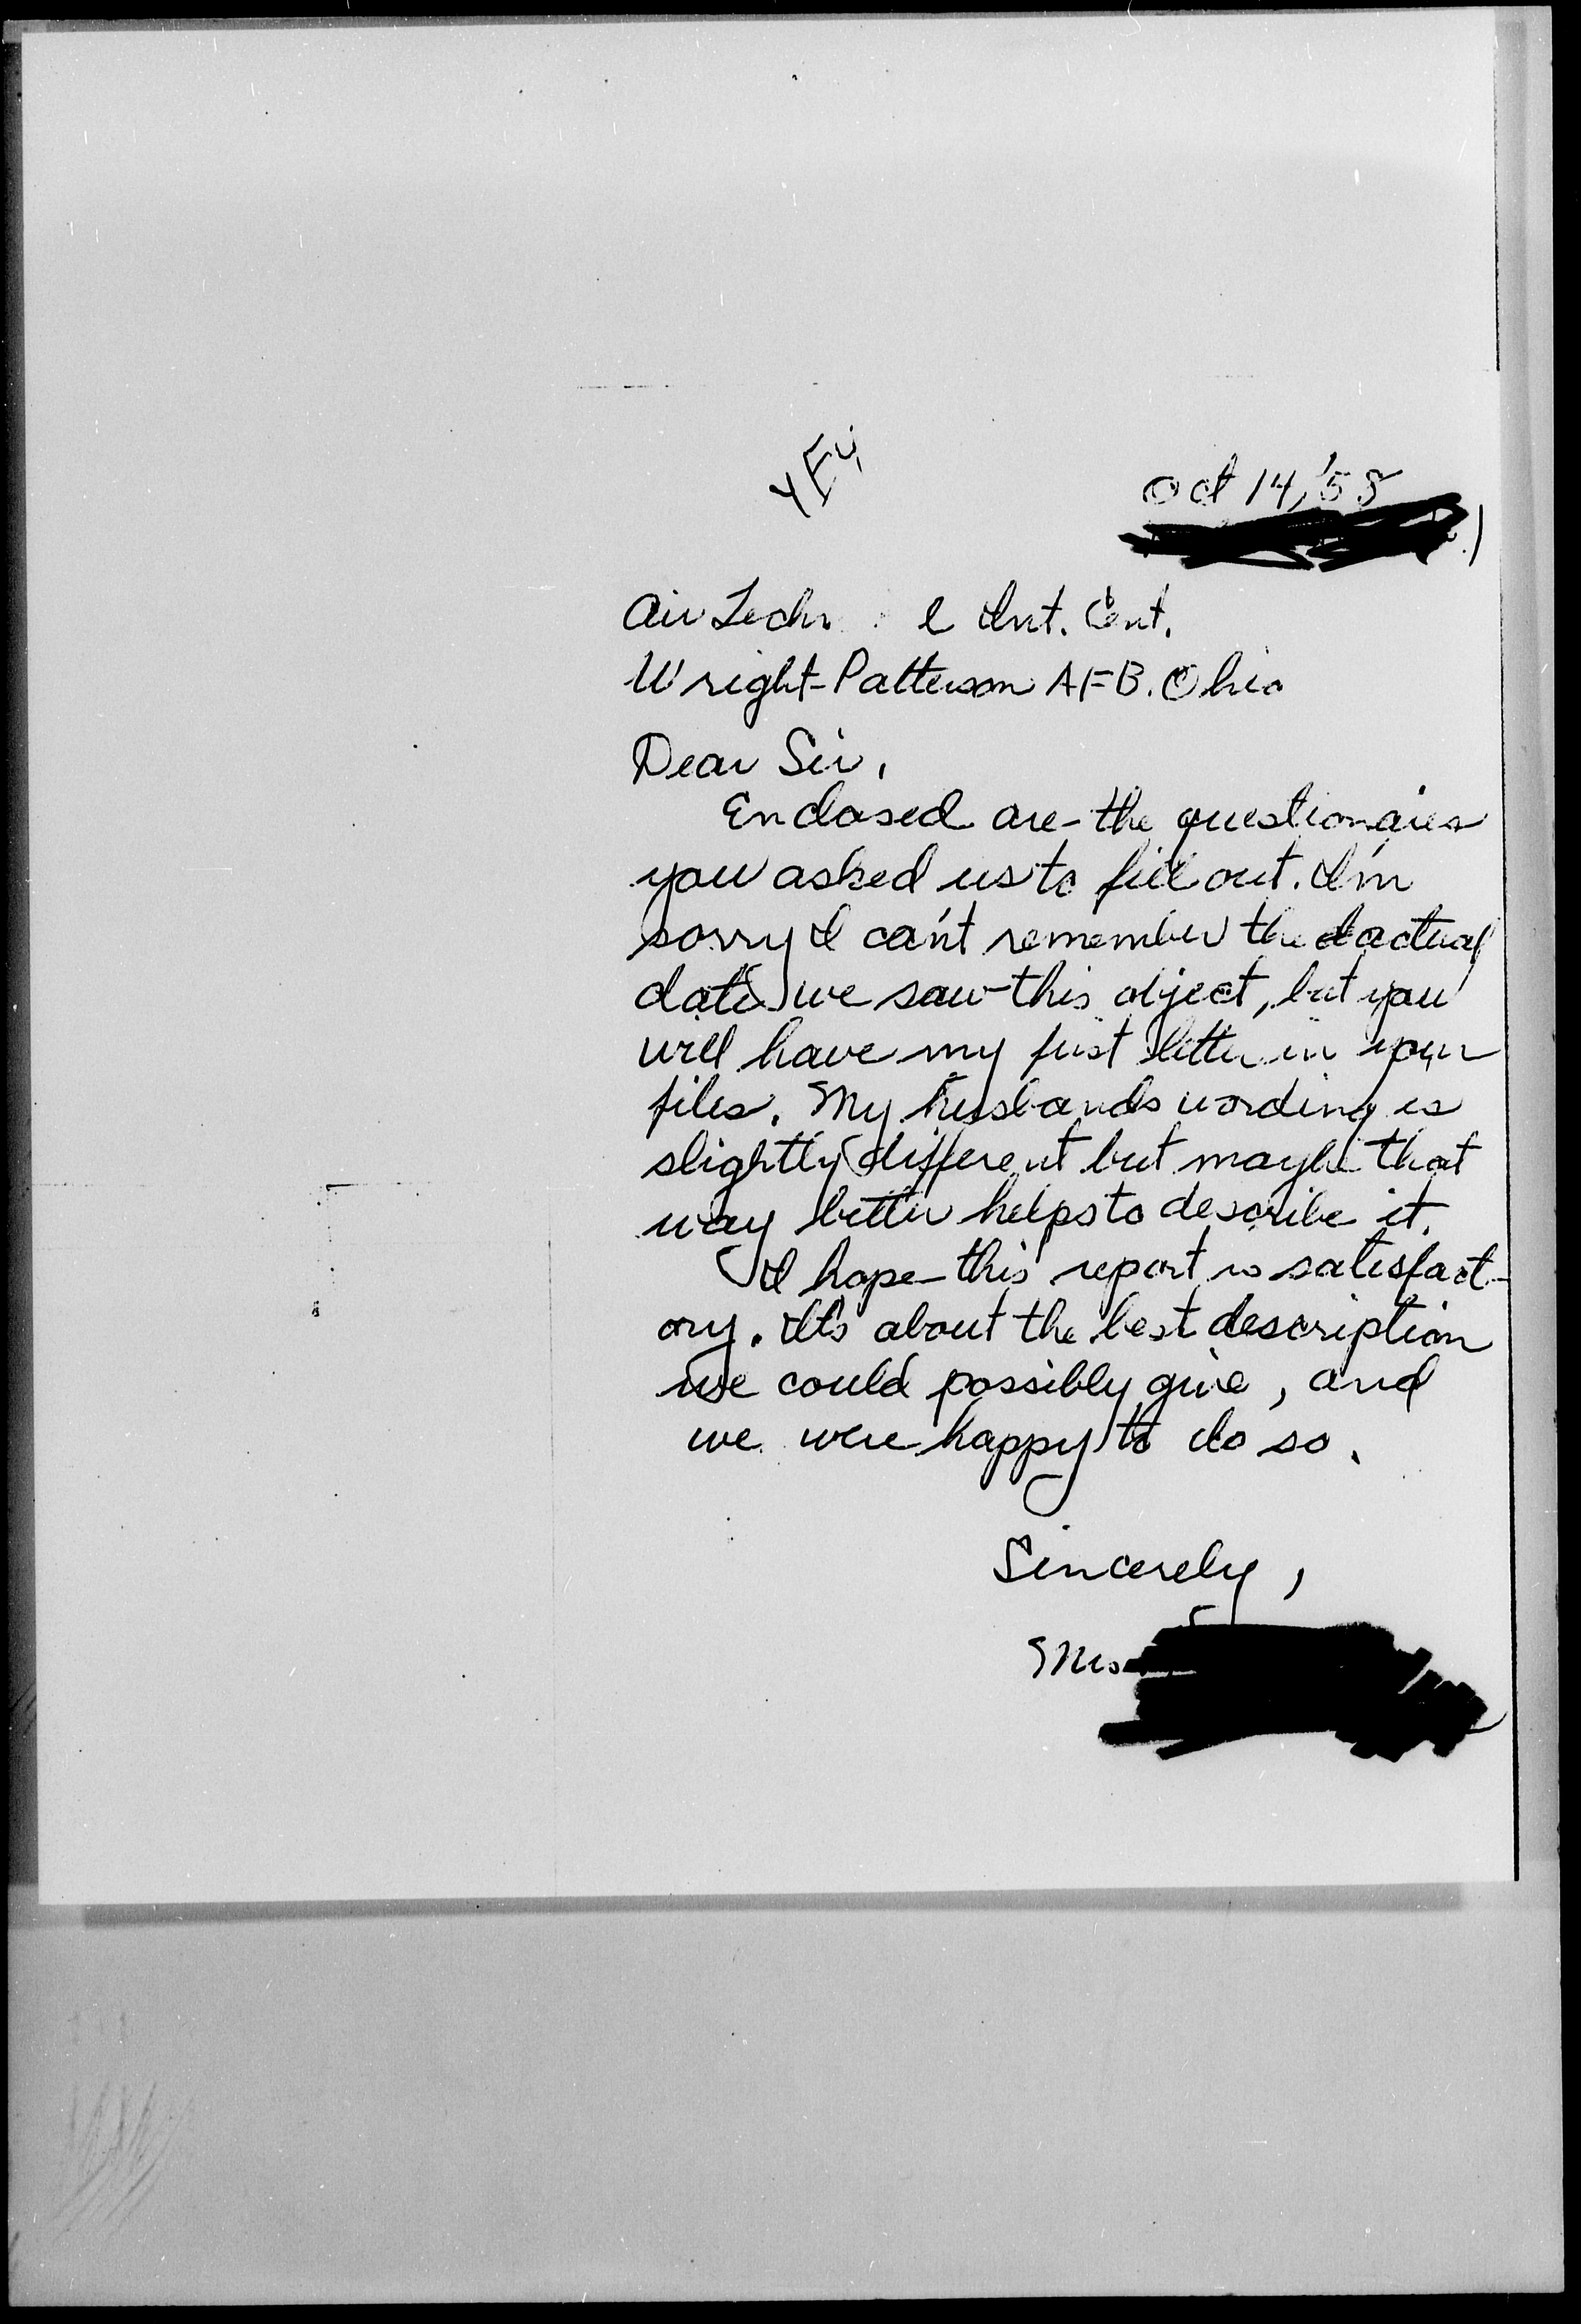 Oct 14, '58
Air Techn l Int. Cent.
Wright-Patterson AFB. Ohio
Dear Sir,
Enclosed are the questionaires
you asked us to fill out. I'm
sorry I can't remember the actual
date we saw this object, but you
will have my first letter in your
files. My husbands wording is
slightly different but maybe that
way better helps to describe it.
I hope this report is satisfact-
ory. It's about the best description
we could possibly give, and
we were happy to do so.
Sincerely,
Mrs